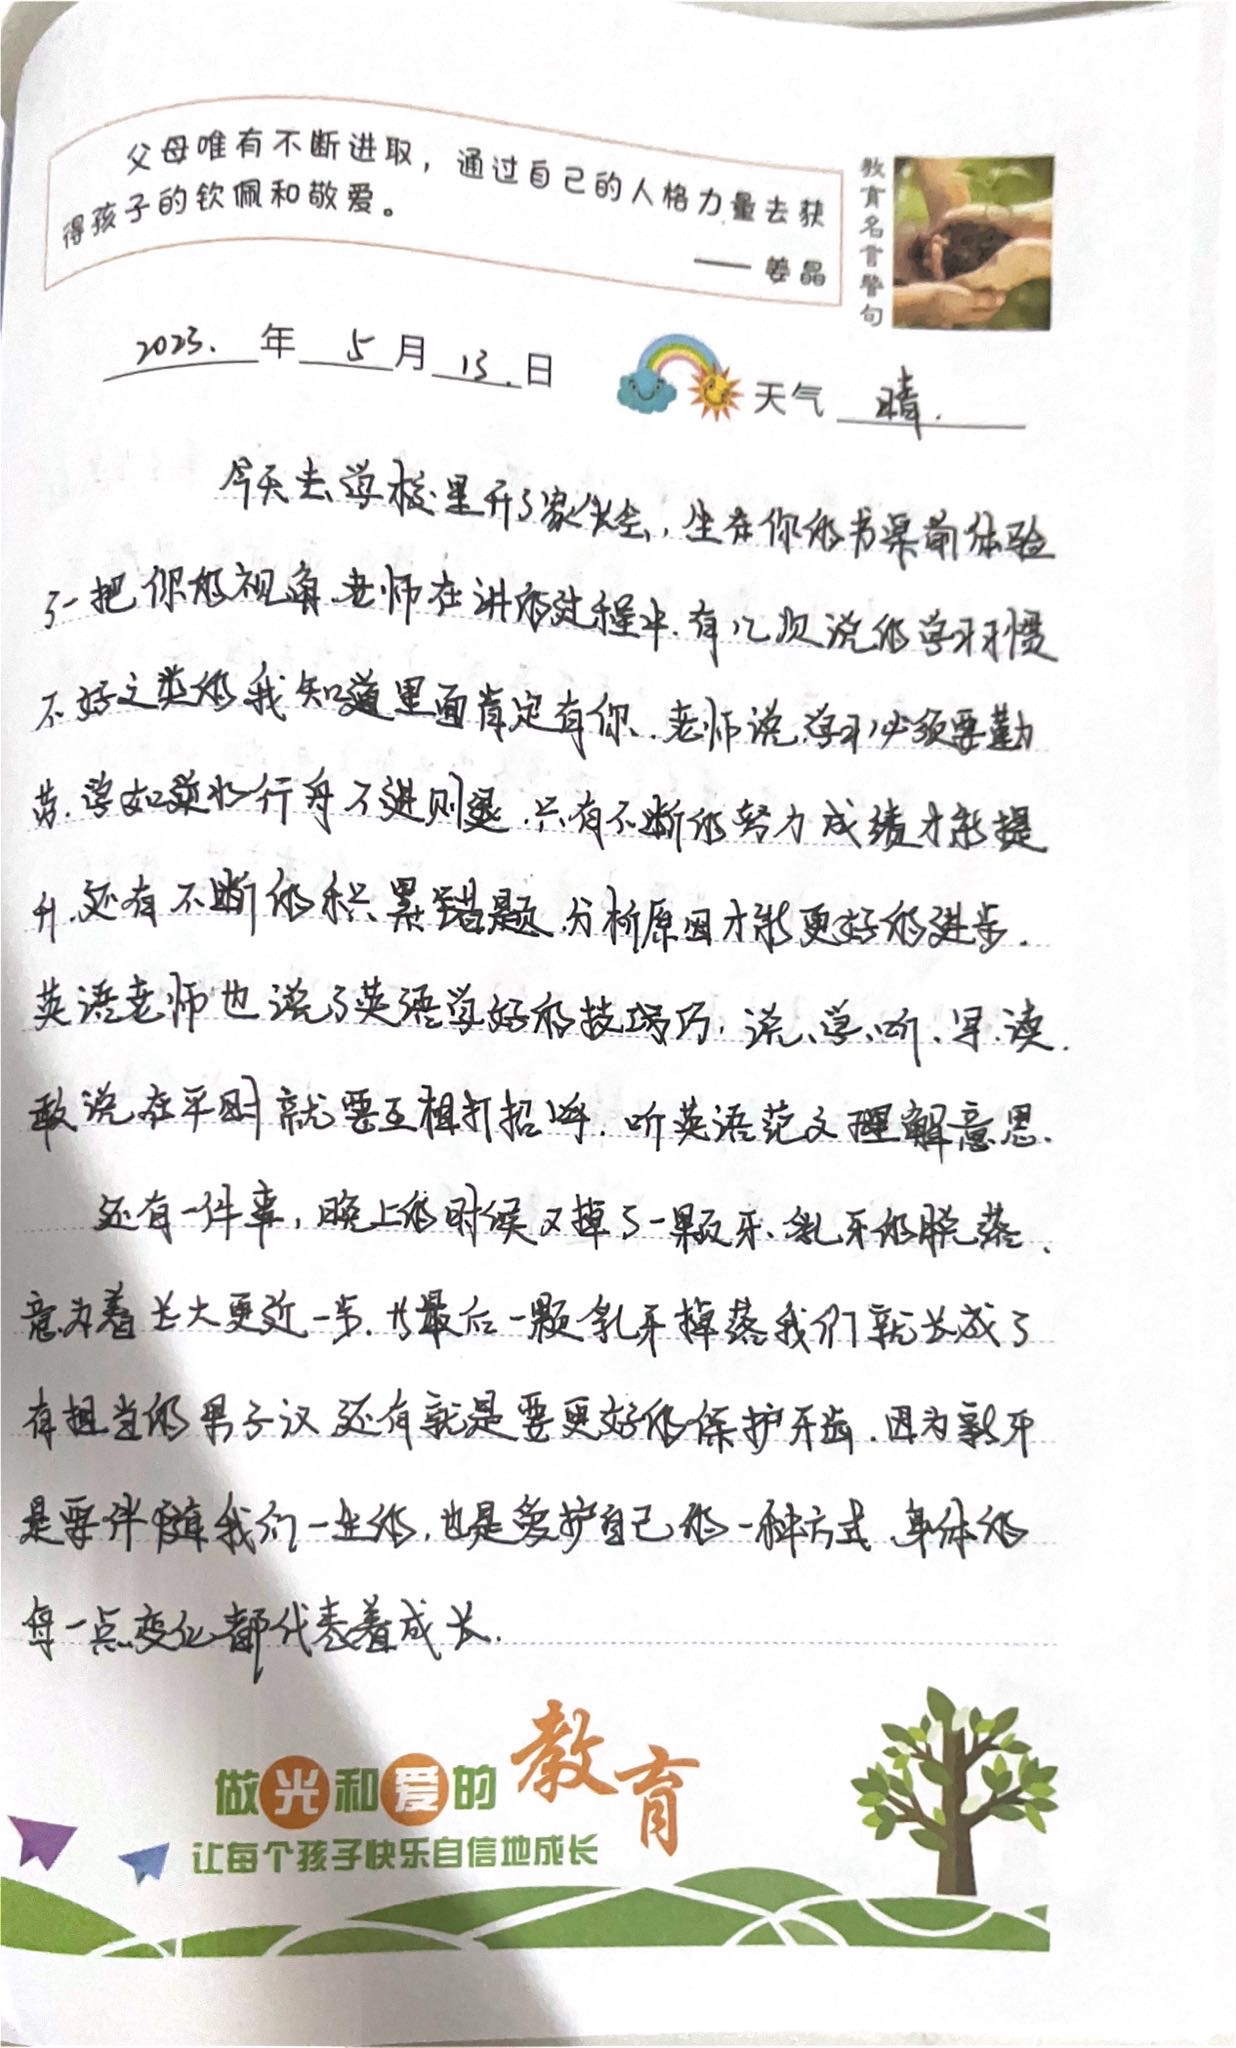 父母唯有不断进取，通过自己的人格力量去获
得孩子的钦佩和敬爱。
—— 姜晶
教育名言警句
2023. 年 5 月 13. 日
天气 晴.
今天去学校里开了家长会，坐在你的书桌前体验
了一把你的视角.老师在讲的过程中.有几次说的学习习惯
不好之类的我知道里面肯定有你.老师说.学习必须要勤
劳.学如逆水行舟不进则退.只有不断的努力成绩才能提
升.还有不断的积累错题.分析原因才能更好的进步.
英语老师也说了英语学好的技巧.说、学、听、写、读.
敢说在平时就要互相打招呼.听英语范文理解意思.
还有一件事，晚上的时候又掉了一颗牙、乳牙的脱落.
意为着长大更近一步.当最后一颗乳牙掉落我们就长成了
有担当的男子汉 还有就是要更好的保护牙齿.因为新牙
是要伴随我们一生的.也是爱护自己的一种方式.身体的
每一点变化都代表着成长.
做光和爱的教育
让每个孩子快乐自信地成长